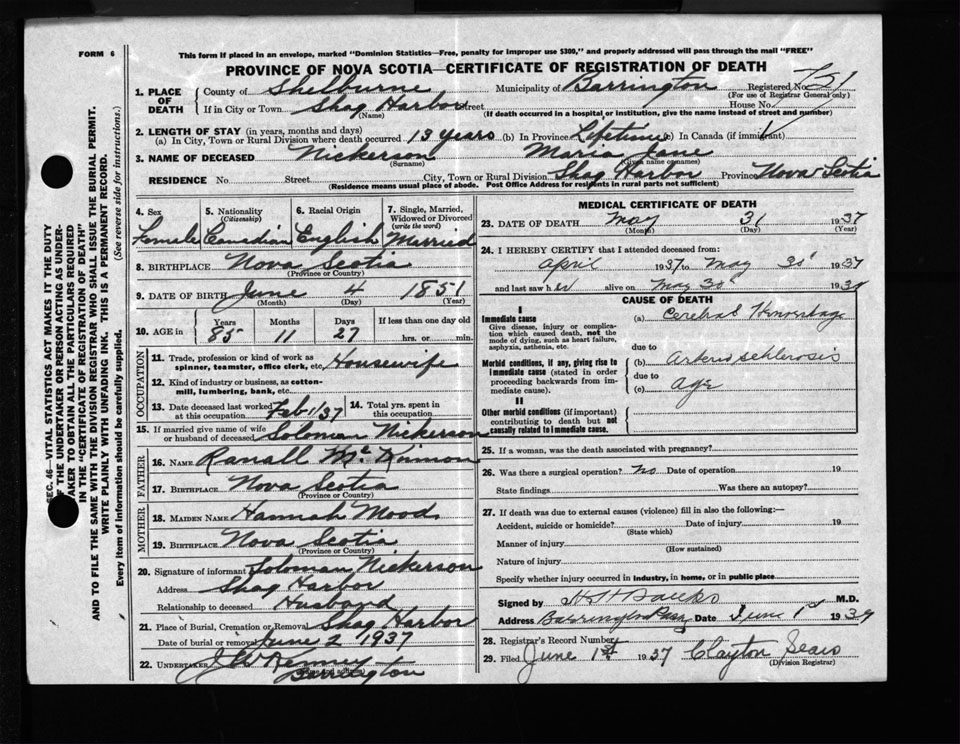 FORM 6
This form if placed in an envelope, marked "Dominion Statistics—Free, penalty for improper use $300," and properly addressed will pass through the mail "FREE"
PROVINCE OF NOVA SCOTIA—CERTIFICATE OF REGISTRATION OF DEATH
1. PLACE OF DEATH County of Shelburne Municipality of Barrington Registered No. 751
(For use of Registrar General only)
If in City or Town Shag Harbor Street House No.
(Name) (If death occurred in a hospital or institution, give the name instead of street and number)
2. LENGTH OF STAY (in years, months and days)
(a) In City, Town or Rural Division where death occurred 13 years (b) In Province Lifetime (c) In Canada (if immigrant)
3. NAME OF DECEASED Nickerson Maria Jane
(Surname) (Given name or names)
RESIDENCE No. Street City, Town or Rural Division Shag Harbor Province Nova Scotia
(Residence means usual place of abode. Post Office Address for residents in rural parts not sufficient)
4. Sex Female
5. Nationality (Citizenship) Canadian
6. Racial Origin English
7. Single, Married, Widowed or Divorced (write the word) Married
8. BIRTHPLACE Nova Scotia
(Province or Country)
9. DATE OF BIRTH June 4 1851
(Month) (Day) (Year)
10. AGE in Years Months Days If less than one day old
85 11 27 hrs. or min.
OCCUPATION
11. Trade, profession or kind of work as spinner, teamster, office clerk, etc. Housewife
12. Kind of industry or business, as cotton-mill, lumbering, bank, etc.
13. Date deceased last worked at this occupation Feb 1/37
14. Total yrs. spent in this occupation
15. If married give name of wife or husband of deceased Soloman Nickerson
FATHER
16. NAME Ranall Mc Kinnon
17. BIRTHPLACE Nova Scotia
(Province or Country)
MOTHER
18. MAIDEN NAME Hannah Mood
19. BIRTHPLACE Nova Scotia
(Province or Country)
20. Signature of informant Soloman Nickerson
Address Shag Harbor
Relationship to deceased Husband
21. Place of Burial, Cremation or Removal Shag Harbor
Date of burial or removal June 2 1937
22. UNDERTAKER J W Kenney
Barrington
MEDICAL CERTIFICATE OF DEATH
23. DATE OF DEATH May 31 1937
(Month) (Day) (Year)
24. I HEREBY CERTIFY that I attended deceased from:
April 1937 to May 30 1937
and last saw her alive on May 30 1937
CAUSE OF DEATH
I
Immediate cause
Give disease, injury or complication which caused death, not the mode of dying, such as heart failure, asphyxia, asthenia, etc.
(a) Cerebral Hemorrhage
due to
Morbid conditions, if any, giving rise to immediate cause (stated in order proceeding backwards from immediate cause).
(b) Arterio schlerosis
due to
(c) Age
II
Other morbid conditions (if important) contributing to death but not causally related to immediate cause.
25. If a woman, was the death associated with pregnancy?
26. Was there a surgical operation? no Date of operation 19
State findings Was there an autopsy?
27. If death was due to external causes (violence) fill in also the following:—
Accident, suicide or homicide? Date of injury 19
(State which)
Manner of injury
(How sustained)
Nature of injury
Specify whether injury occurred in industry, in home, or in public place
Signed by H H Banks M.D.
Address Barrington Pass. Date June 1 1937
28. Registrar's Record Number
29. Filed June 1st 1937 Clayton Sears
(Division Registrar)
SEC. 46—VITAL STATISTICS ACT MAKES IT THE DUTY
OF THE UNDERTAKER OR PERSON ACTING AS UNDER-
TAKER TO OBTAIN ALL THE PARTICULARS REQUIRED
IN THE "CERTIFICATE OF REGISTRATION OF DEATH"
AND TO FILE THE SAME WITH THE DIVISION REGISTRAR WHO SHALL ISSUE THE BURIAL PERMIT.
WRITE PLAINLY WITH UNFADING INK. THIS IS A PERMANENT RECORD.
Every item of information should be carefully supplied. (See reverse side for instructions.)